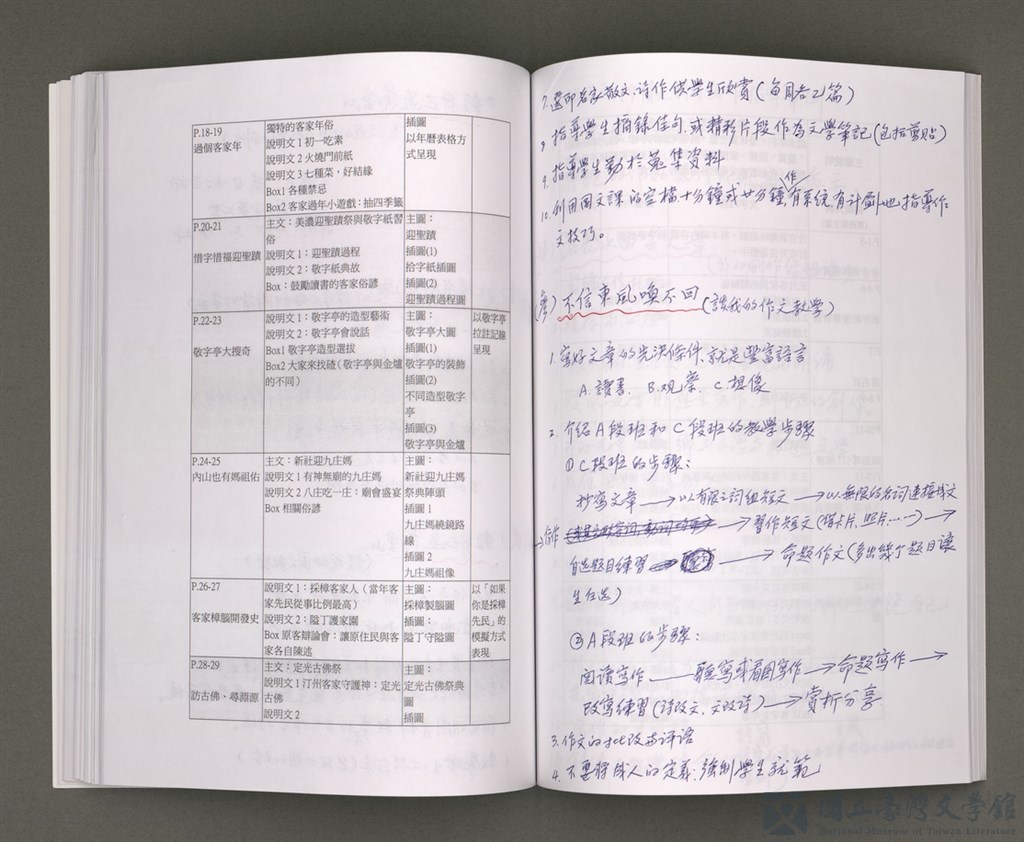 P.18-19
過個客家年
獨特的客家年俗
說明文 1 初一吃素
說明文 2 火燒門前紙
說明文 3 七種菜，好結緣
Box1 各種禁忌
Box2 客家過年小遊戲：抽四季籤
插圖
以年曆表格方
式呈現
P.20-21
惜字惜福迎聖蹟
主文：美濃迎聖蹟祭與敬字紙習
俗
說明文 1：迎聖蹟過程
說明文 2：敬字紙典故
Box：鼓勵讀書的客家俗諺
主圖：
迎聖蹟
插圖(1)
拾字紙插圖
插圖(2)
迎聖蹟過程圖
P.22-23
敬字亭大搜奇
說明文 1：敬字亭的造型藝術
說明文 2：敬字亭會說話
Box1 敬字亭造型選拔
Box2 大家來找碴（敬字亭與金爐
的不同）
主圖：
敬字亭大圖
插圖(1)
敬字亭的裝飾
插圖(2)
不同造型敬字
亭
插圖(3)
敬字亭與金爐
以敬字亭
拉註記線
呈現
P.24-25
內山也有媽祖佑
主文：新社迎九庄媽
說明文 1 有神無廟的九庄媽
說明文 2 八庄吃一庄：廟會盛宴
Box 相關俗諺
主圖：
新社迎九庄媽
祭典陣頭
插圖 1
九庄媽繞鏡路
線
插圖 2
九庄媽祖像
P.26-27
客家樟腦開發史
說明文 1：採樟客家人（當年客
家先民從事比例最高）
說明文 2：隘丁護家園
Box 原客辯論會：讓原住民與客
家各自陳述
主圖：
採樟製腦圖
插圖：
隘丁守隘圖
以「如果
你是採樟
先民」的
模擬方式
表現
P.28-29
訪古佛、尋淵源
主文：定光古佛祭
說明文 1 汀州客家守護神：定光
古佛
說明文 2
主圖：
定光古佛祭典
圖
插圖
7. 選印名家散文、詩作供學生欣賞（每月各乙篇）
8. 指導學生摘錄佳句，或精彩片段作為文學筆記（包括剪貼）
9. 指導學生勤於蒐集資料
10. 利用國文課的空檔十分鐘或廿分鐘，作有系統有計劃地指導作
文技巧。
(參) 不信東風喚不回（談我的作文教學）
1. 寫好文章的先決條件，就是豐富語言
A. 讀書、B. 观察、C. 想像
2. 介紹 A 段班和 C 段班的教學步驟
① C 段班的步驟：
抄寫文章 → 以有限之詞組短文 → 以無限的名詞連接成文
→仿作 → 習作短文（賀卡片、照片……）→
自選題目練習 → 命題作文（多出幾個題目讓
生任选）
② A 段班的步驟：
閱讀寫作 → 聽寫或看圖寫作 → 命題寫作 →
改寫練習（詩改文、文改詩）→ 賞析分享
3. 作文的批改与評語
4. 不要將成人的定義，強制學生就範
國立臺灣文學館
National Museum of Taiwan Literature